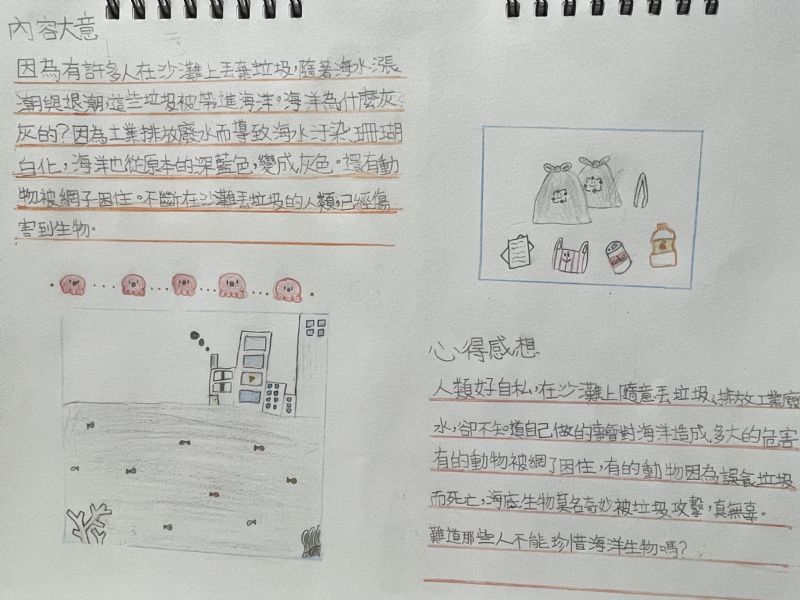 內容大意
因為有許多人在沙灘上丟棄垃圾,隨著海水漲
潮與退潮,這些垃圾被帶進海洋。海洋為什麼灰
灰的?因為工業排放廢水而導致海水汙染,珊瑚
白化,海洋也從原本的深藍色,變成灰色。還有動
物被網子困住。不斷在沙灘丟垃圾的人類,已經傷
害到生物。
心得感想
人類好自私,在沙灘上隨意丟垃圾、排放工業廢
水,卻不知道自己做的事會對海洋造成多大的危害
有的動物被網子困住,有的動物因為誤食垃圾
而死亡,海底生物莫名奇妙被垃圾攻擊,真無辜。
難道那些人不能珍惜海洋生物嗎?